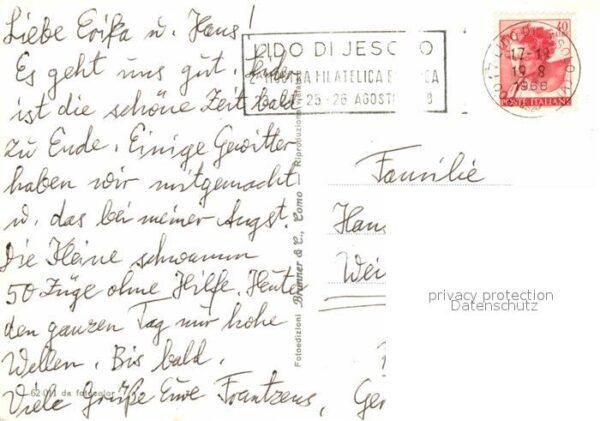 Liebe Erika u. Hans!
Es geht uns gut. Leider
ist die schöne Zeit bald
zu Ende. Einige Gewitter
haben wir mitgemacht
u. das bei meiner Angst.
Die Kleine schwamm
50 Züge ohne Hilfe. Heute
den ganzen Tag nur hohe
Wellen. Bis bald.
Viele Grüße Euve Frantzens,
LIDO DI JESOLO
MOSTRA FILATELICA
25-26 AGOSTO
40
POSTE ITALIANE
17-18
19.8
1968
Familie
Hans
Wei
Ge
Fotoedizioni Brunner & C., Como — Riproduzione vietata
62011 da fotocolor
privacy protection
Datenschutz